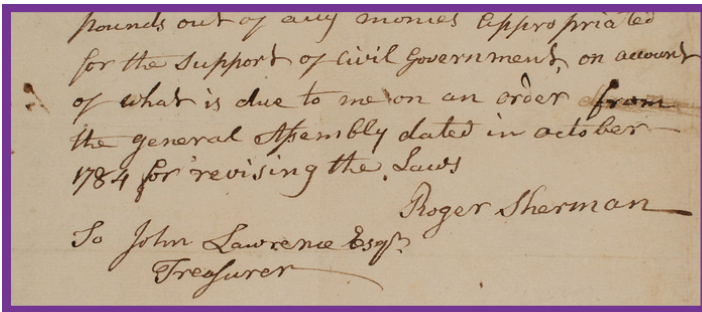 pounds out of any monies appropriated
for the support of Civil Government, on account
of what is due to me on an order from
the general Assembly dated in october
1784 for revising the Laws
Roger Sherman
To John Lawrence Esqr.
Treasurer